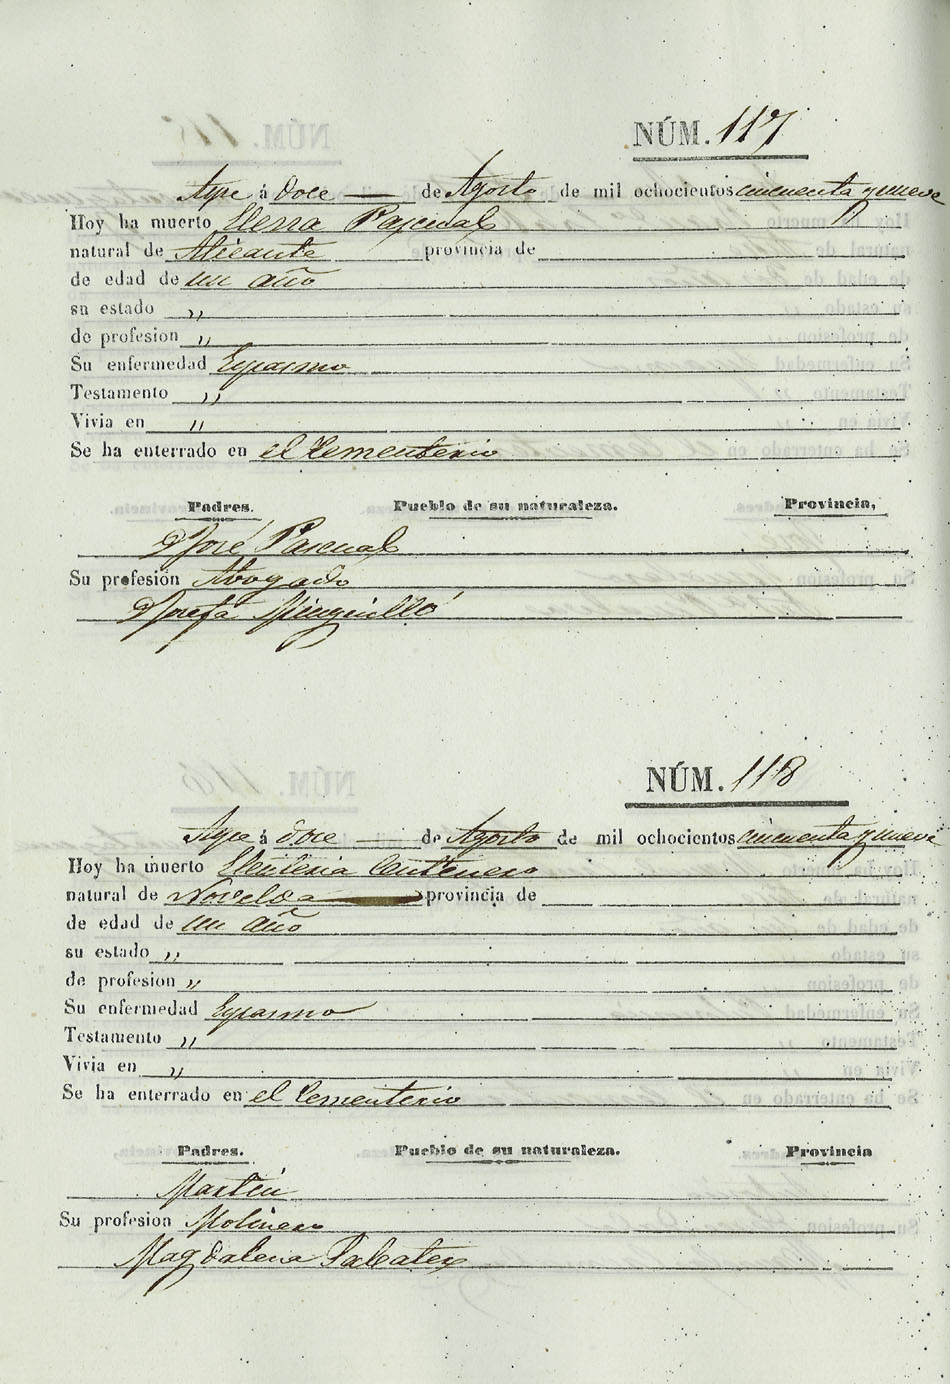 NÚM. 117
Aspe á doce — de Agosto de mil ochocientos cincuenta y nueve
Hoy ha muerto Pascual
natural de Alicante provincia de
de edad de un año
su estado "
de profesion "
Su enfermedad Espasmo
Testamento "
Vivia en "
Se ha enterrado en el Cementerio
Padres. Pueblo de su naturaleza. Provincia,
D José Pascual
Su profesión Abogado
Da Josefa Minguilló
NÚM. 118
Aspe á doce — de Agosto de mil ochocientos cincuenta y nueve
Hoy ha muerto Eleuteria Centenero
natural de Novelda provincia de
de edad de un año
su estado "
de profesion "
Su enfermedad Espasmo
Testamento "
Vivia en "
Se ha enterrado en el Cementerio
Padres. Pueblo de su naturaleza. Provincia
Martin
Su profesion Molinero
Magdalena Sabater